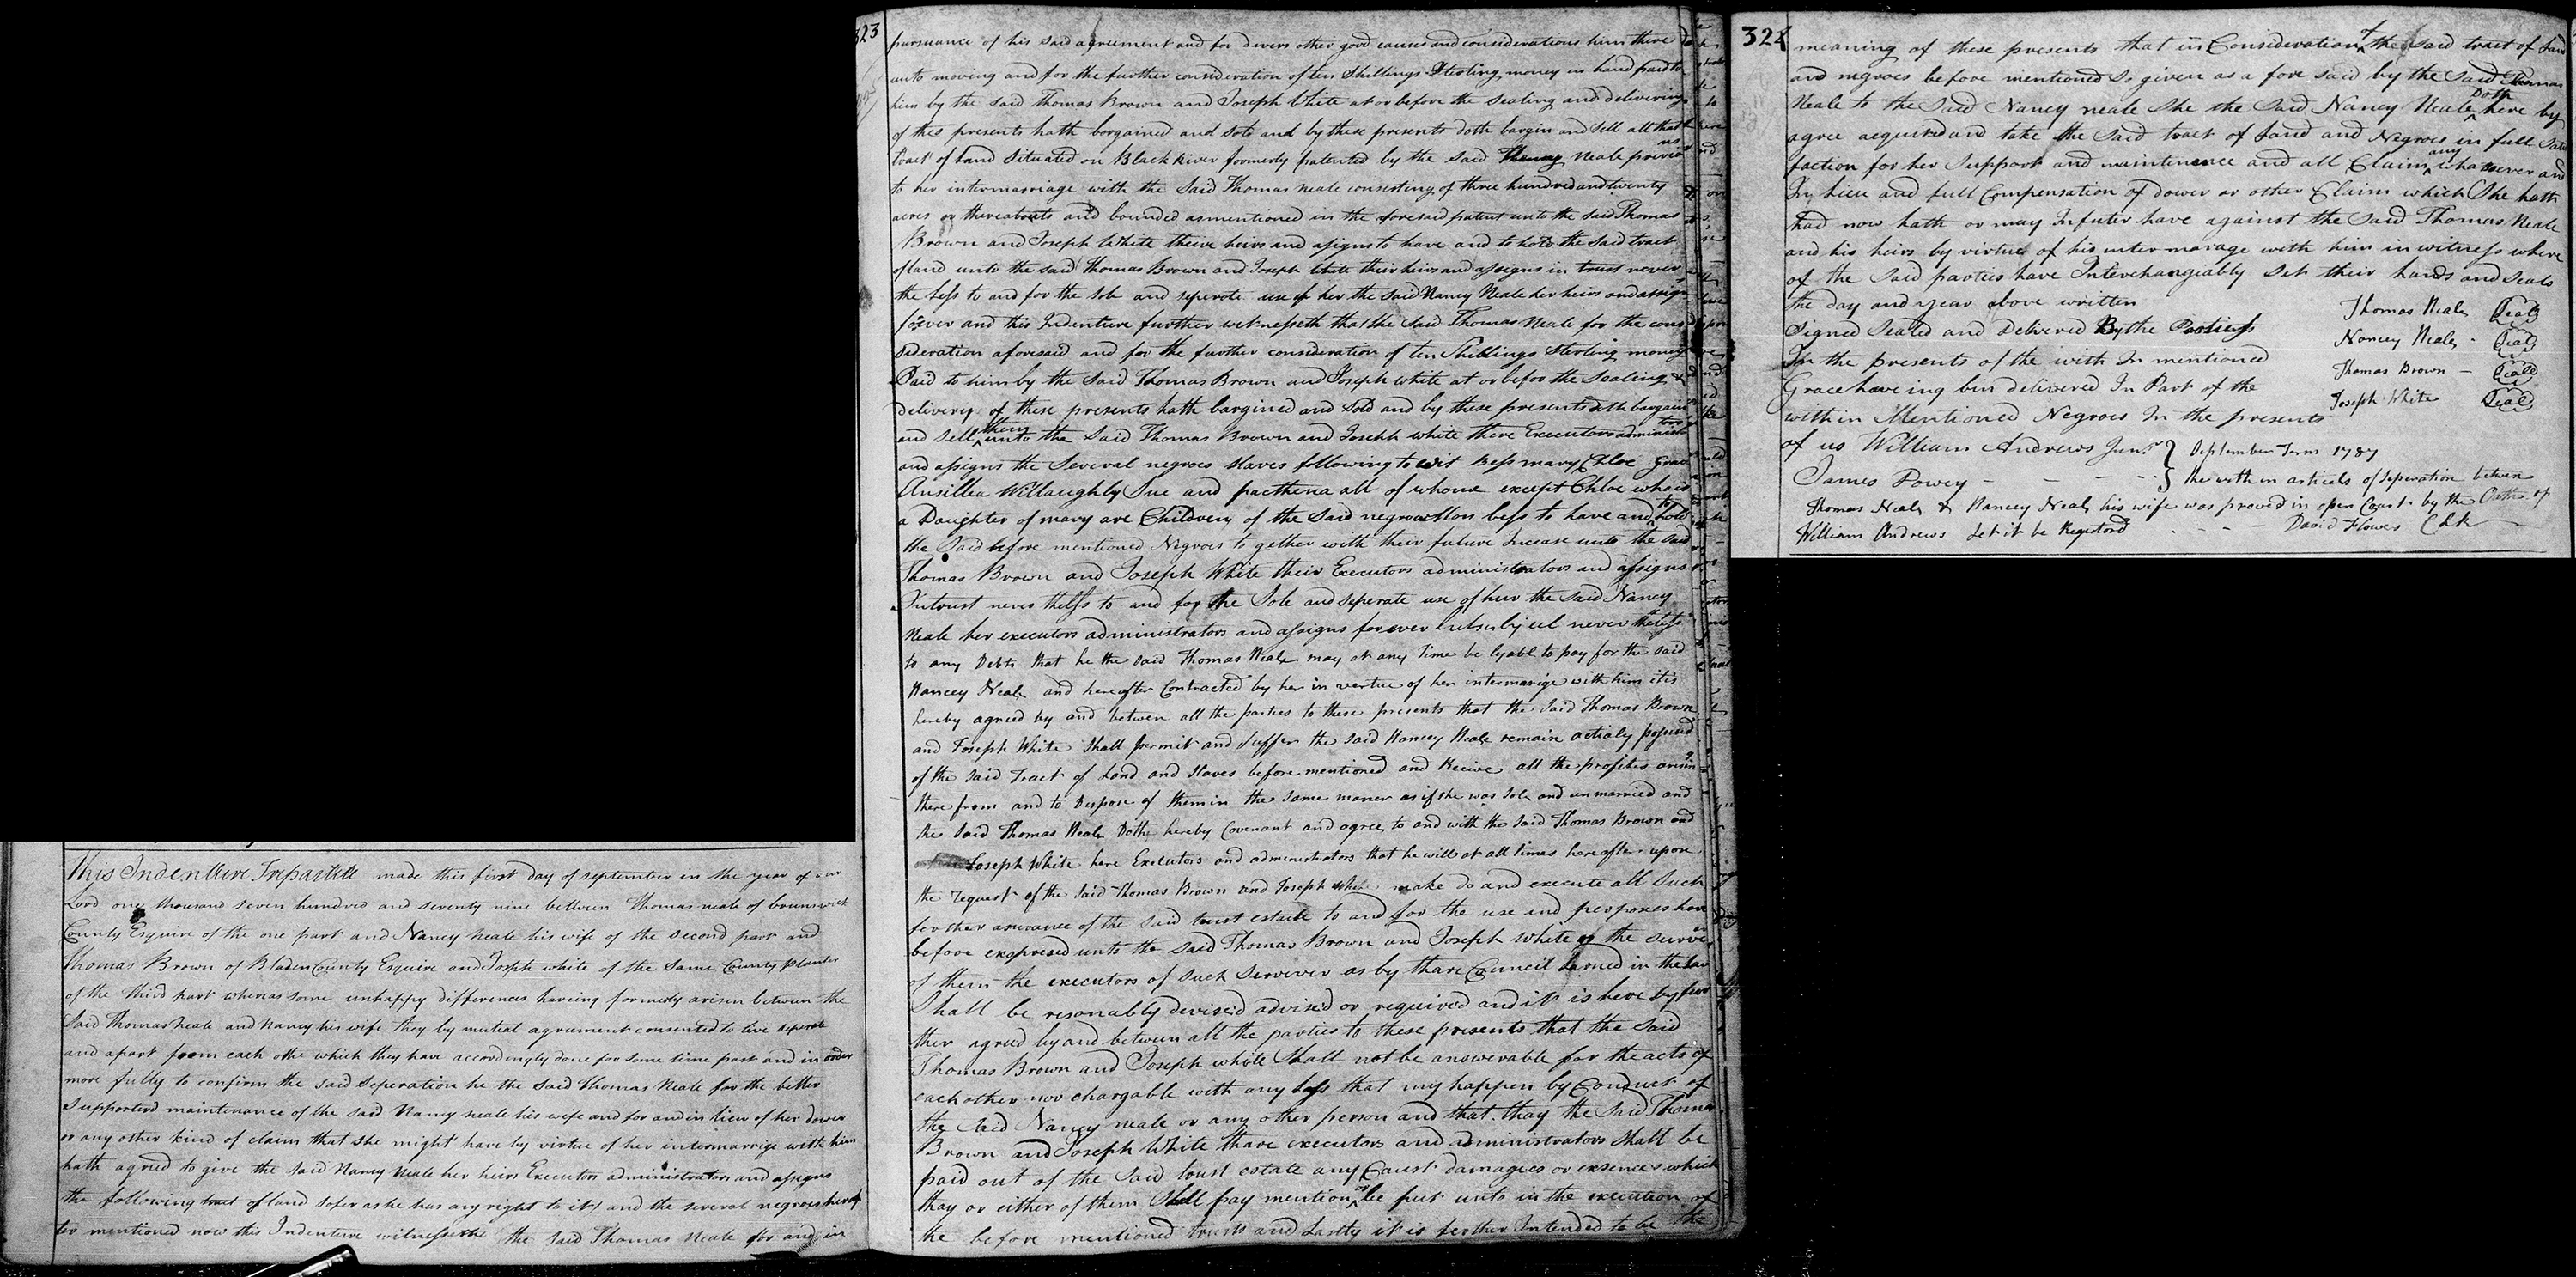 This Indenture Tripartite made this first day of september in the year of our
Lord one thousand seven hundred and seventy nine between Thomas neale of brunswick
County Esquire of the one part and Nancy neale his wife of the second part and
Thomas Brown of Bladen County Esquire and Joseph white of the Same County Planter
of the third part whereas some unhappy differences haveing formerly arisen between the
Said Thomas Neale and Nancy his wife they by mutial agreement consented to live seperate
and apart from each othe which they have accordingly done for some time past and in order
more fully to confirm the said Seperation he the said Thomas Neale for the better
Supporterd maintenance of the said Nancy neale his wife and for and in lieu of her dower
or any other kind of claim that she might have by virtue of her intermarrige with him
hath agreed to give the said Nancy Neale her heirs Executors administrators and assigns
the following tract of land sofer as he has any right to it / and the several negroes heraf
ter mentioned now this Indenture witnesseth the Said Thomas Neale for and in
323
pursuance of his said agreement and for divers other good causes and considerations him there
unto moving and for the further consideration of ten Shillings Sterling money in hand paid to
him by the said Thomas Brown and Joseph White at or before the Sealing and delivering
of thes presents hath bargained and sold and by these presents doth bargin and Sell all that
tract of land Situated on Black River formerly patented by the said Neale previous
to her intermarriage with the Said Thomas neale consisting of three hundred and twenty
acres or thereabouts and bounded as mentioned in the aforesaid patent unto the said Thomas
Brown and Joseph White theire heirs and asigns to have and to hold the said tract
of land unto the said Thomas Brown and Joseph White their heirs and assigns in trust never
the less to and for the sole and seperate use of her the said Nancy Neale her heirs and assigns
forever and this Indenture further witnesseth that the said Thomas Neale for the con
sideration aforesaid and for the further consideration of ten Shillings Sterling money
Paid to him by the Said Thomas Brown and Joseph white at or befor the Sealing &
delivery of these presents hath bargined and Sold and by these presents doth bargain
and sell them unto the Said Thomas Brown and Joseph white there Executors administrators
and assigns the Several negroes slaves following to wit Bess mary Chloe Grace
Ansillea Willaughby Sue and pacthena all of whome except Chloe who is
a Daughter of mary are Children of the Said negro bess to have and to hold
the Said before mentioned Negroes to gether with their future Increase unto the said
Thomas Brown and Joseph White their Executors administrators and assigns
Intrust never thelss to and for the Sole and Seperate use of her the said Nancy
Neale her executors administrators and assigns forever never theless
to any Debts that he the said Thomas Neale may at any Time be lyable to pay for the said
Nancey Neale and hereafter Contracted by her in vertue of her intermarige with him it is
hereby agreed by and betwen all the parties to these presents that the Said Thomas Brown
and Joseph White Shall permit and Suffer the said Nancey Neale remain actialy possessed
of the said Tract of Land and Slaves before mentioned and Recive all the profites arising
there from and to Dispose of them in the same maner as if she was Sole and unmarried and
the said Thomas Neale Doth hereby Covenant and agree to and with the Said Thomas Brown and
Joseph White here Executors and administrators that he will at all times hereafter upon
the request of the Said Thomas Brown and Joseph White make do and execute all Such
ferther assurance of the Said trust estate to and for the use and perposes here
before exspresed unto the Said Thomas Brown and Joseph White or the surviver
of them the executors of Such Serviver as by thare Council larned in the Law
Shall be resonably devised advised or required and it is here by fur
ther agreed by and between all the parties to these presents that the Said
Thomas Brown and Joseph white Shall not be answerable for the acts of
each other nor chargable with any loss that my happen by Conduct of
the Said Nancy neale or any other person and that thay the Said Thomas
Brown and Joseph White thare executors and administrators Shall be
paid out of the Said trust estate any Caust damages or exsences which
thay or either of them Shall pay mention or be put unto in the execution of
the before mentioned Trusts and Lastly it is ferther Intended to be the
324
meaning of these presents that in Consideration of the Said tract of Land
and negroes before mentioned So given as a fore said by the Said Thomas
Neale to the Said Nancy neale She the Said Nancy Neale Doth here by
agree acquired and take the Said tract of Land and Negroes in full Satis
faction for her Support and maintenence and all Claim any whatsoever and
In Lieu and full Compensation of dower or other Claim which She hath
had now hath or may Infuter have against the Said Thomas Neale
and his heirs by virtue of his inter marage with him in witness where
of the Said parties have Interchangiably Set their hands and Seals
the day and year above written
Thomas Neale Seal
Signed Sealed and Delivered By the Partiess
Nancey Neale - Seal
In the presents of the with In mentioned
Thomas Brown - Seal
Grace haveing bin delivered In Part of the
Joseph White Seal
within Mentioned Negroes In the presents
of us William Andrews Junr } September Term 1787
James Powey - - - - } the within articls of Seperation betwen
Thomas Neale & Nancey Neale his wife was proved in open Court by the Oath of
William Andrews Let it be Registord - - - David Flowers Clk